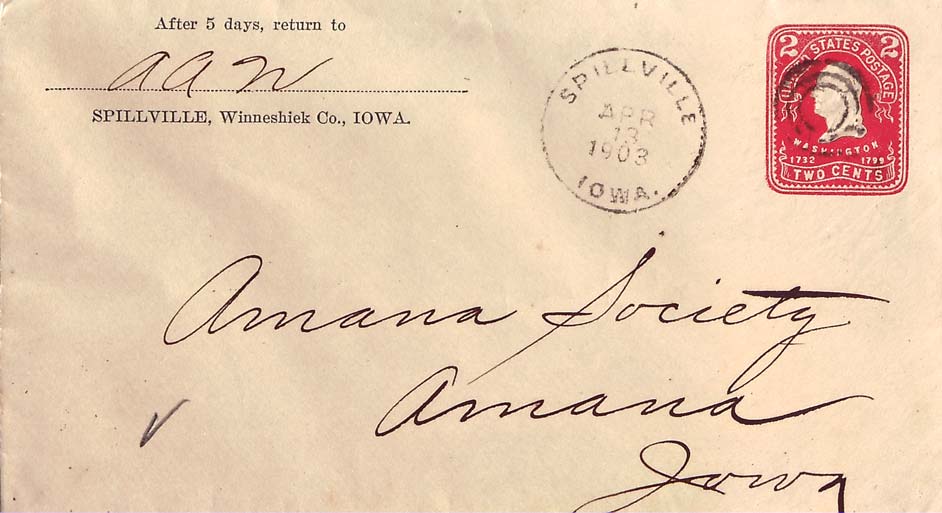 After 5 days, return to
a a n
SPILLVILLE, Winneshiek Co., IOWA.
SPILLVILLE
APR
13
1903
IOWA.
2 2
UNITED STATES POSTAGE
WASHINGTON
1732 1799
TWO CENTS
Amana Society
Amana
Iowa